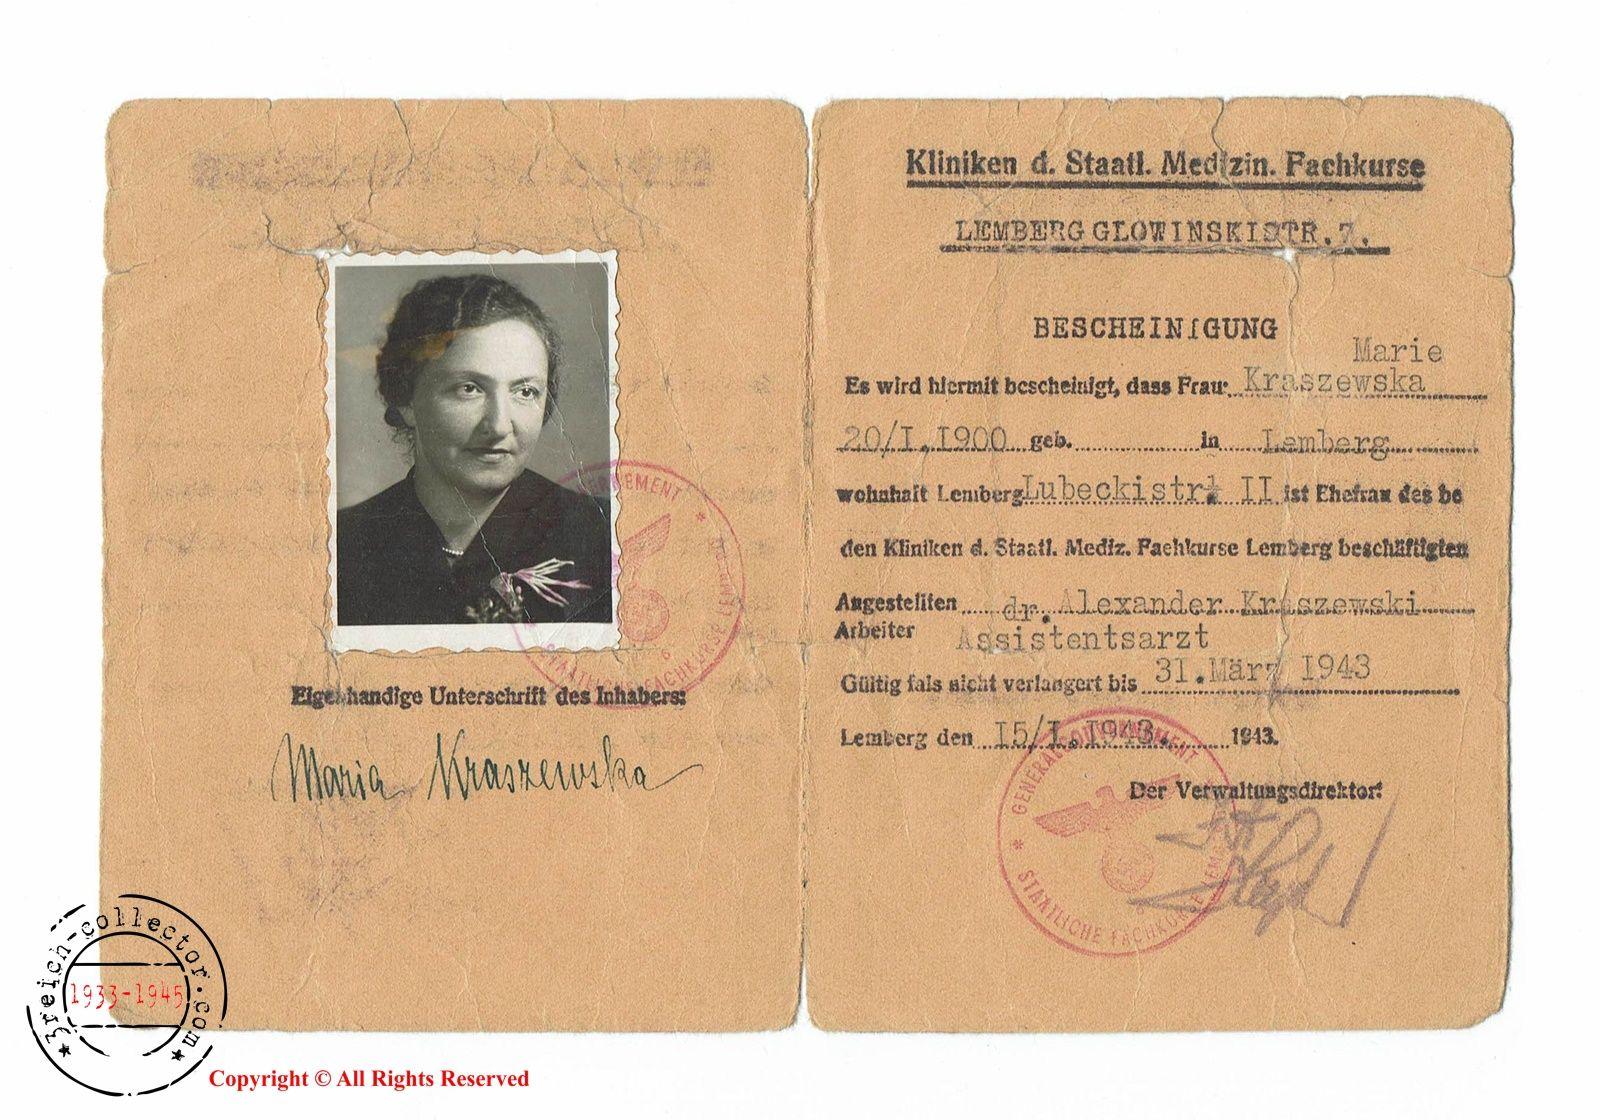 Eigenhandige Unterschrift des Inhabers:
Maria Kraszewska
GOUVERNEMENT
STAATLICHE FACHKURSE LEMBERG
Kliniken d. Staatl. Medizin. Fachkurse
LEMBERG GLOWINSKISTR.7.
BESCHEINIGUNG
Marie
Es wird hiermit bescheinigt, dass Frau: Kraszewska
20/I.1900 geb. in Lemberg
wohnhaft Lemberg Lubeckistr. II ist Ehefrau des be
den Kliniken d. Staatl. Mediz. Fachkurse Lemberg beschäftigten
Angestellten dr. Alexander Kraszewski
Arbeiter Assistentsarzt
Gültig fals nicht verlangert bis 31.März 1943
Lemberg den 15/I.1943. 1943.
Der Verwaltungsdirektor:
GENERALGOUVERNEMENT
STAATLICHE FACHKURSE LEM
3reich-collector.com
1933-1945
Copyright © All Rights Reserved